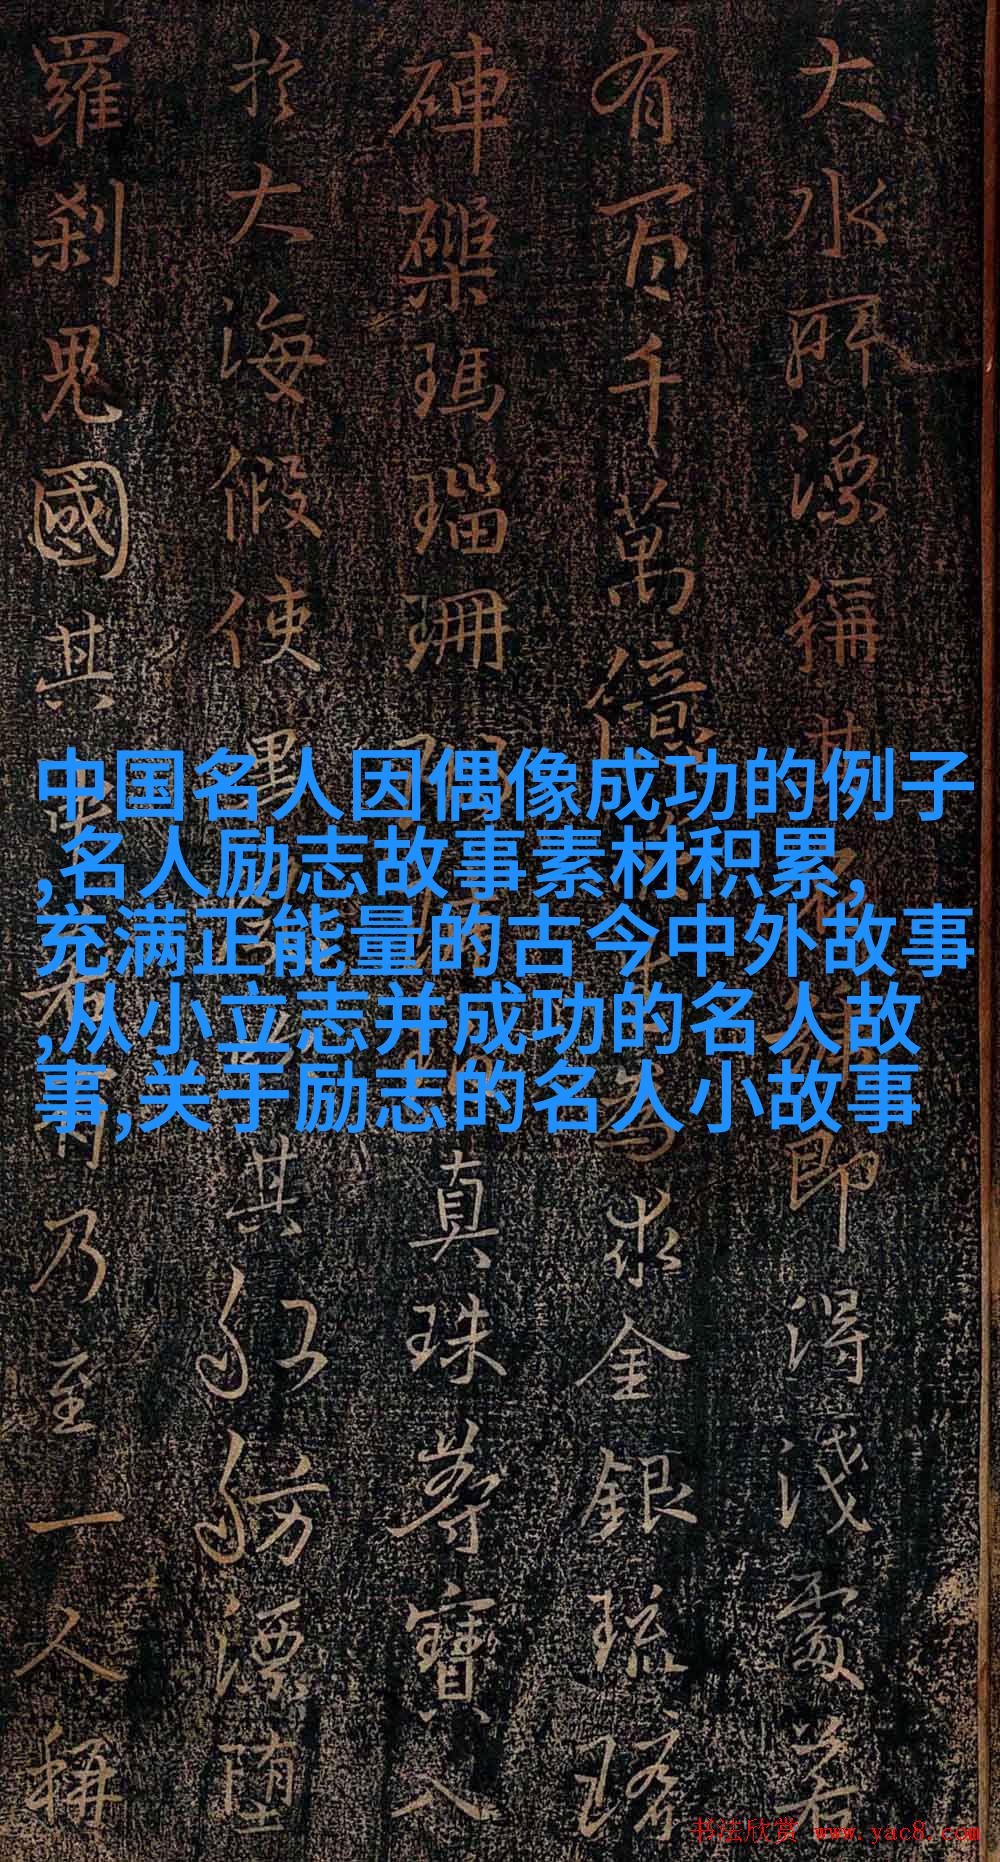 大水所漂稱其名號即得淺處若
有百千萬億眾生為求金銀琉璃
硨磲瑪瑙珊瑚琥珀真珠等寶入
於大海假使黑風吹其船舫漂堕
羅刹鬼國其中若有乃至一人稱
中国名人因偶像成功的例子
,名人励志故事素材积累,
充满正能量的古今中外故事
,从小立志并成功的名人故
事,关于励志的名人小故事
书法欣赏 www.yac8.com